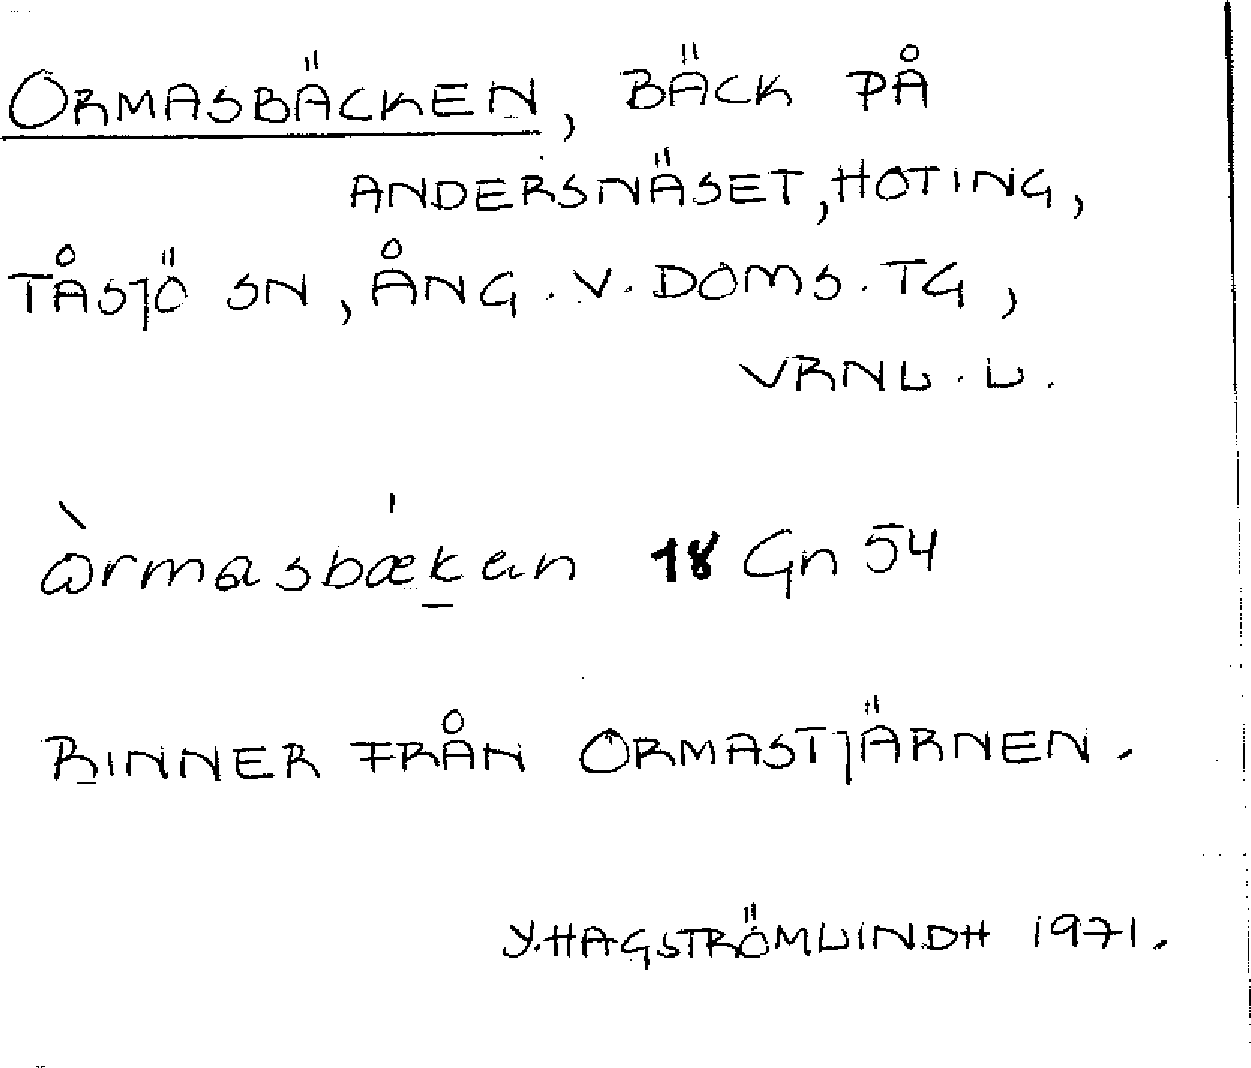 ORMASBÄCKEN, BÄCK PÅ
ANDERSNÄSET, HOTING,
TÅSJÖ SN, ÅNG. V. DOMS. TG,
VRNL. L.
òrmasbækan 18 Gn 54
RINNER FRÅN ORMASTJÄRNEN.
Y. HAGSTRÖMLINDH 1971.